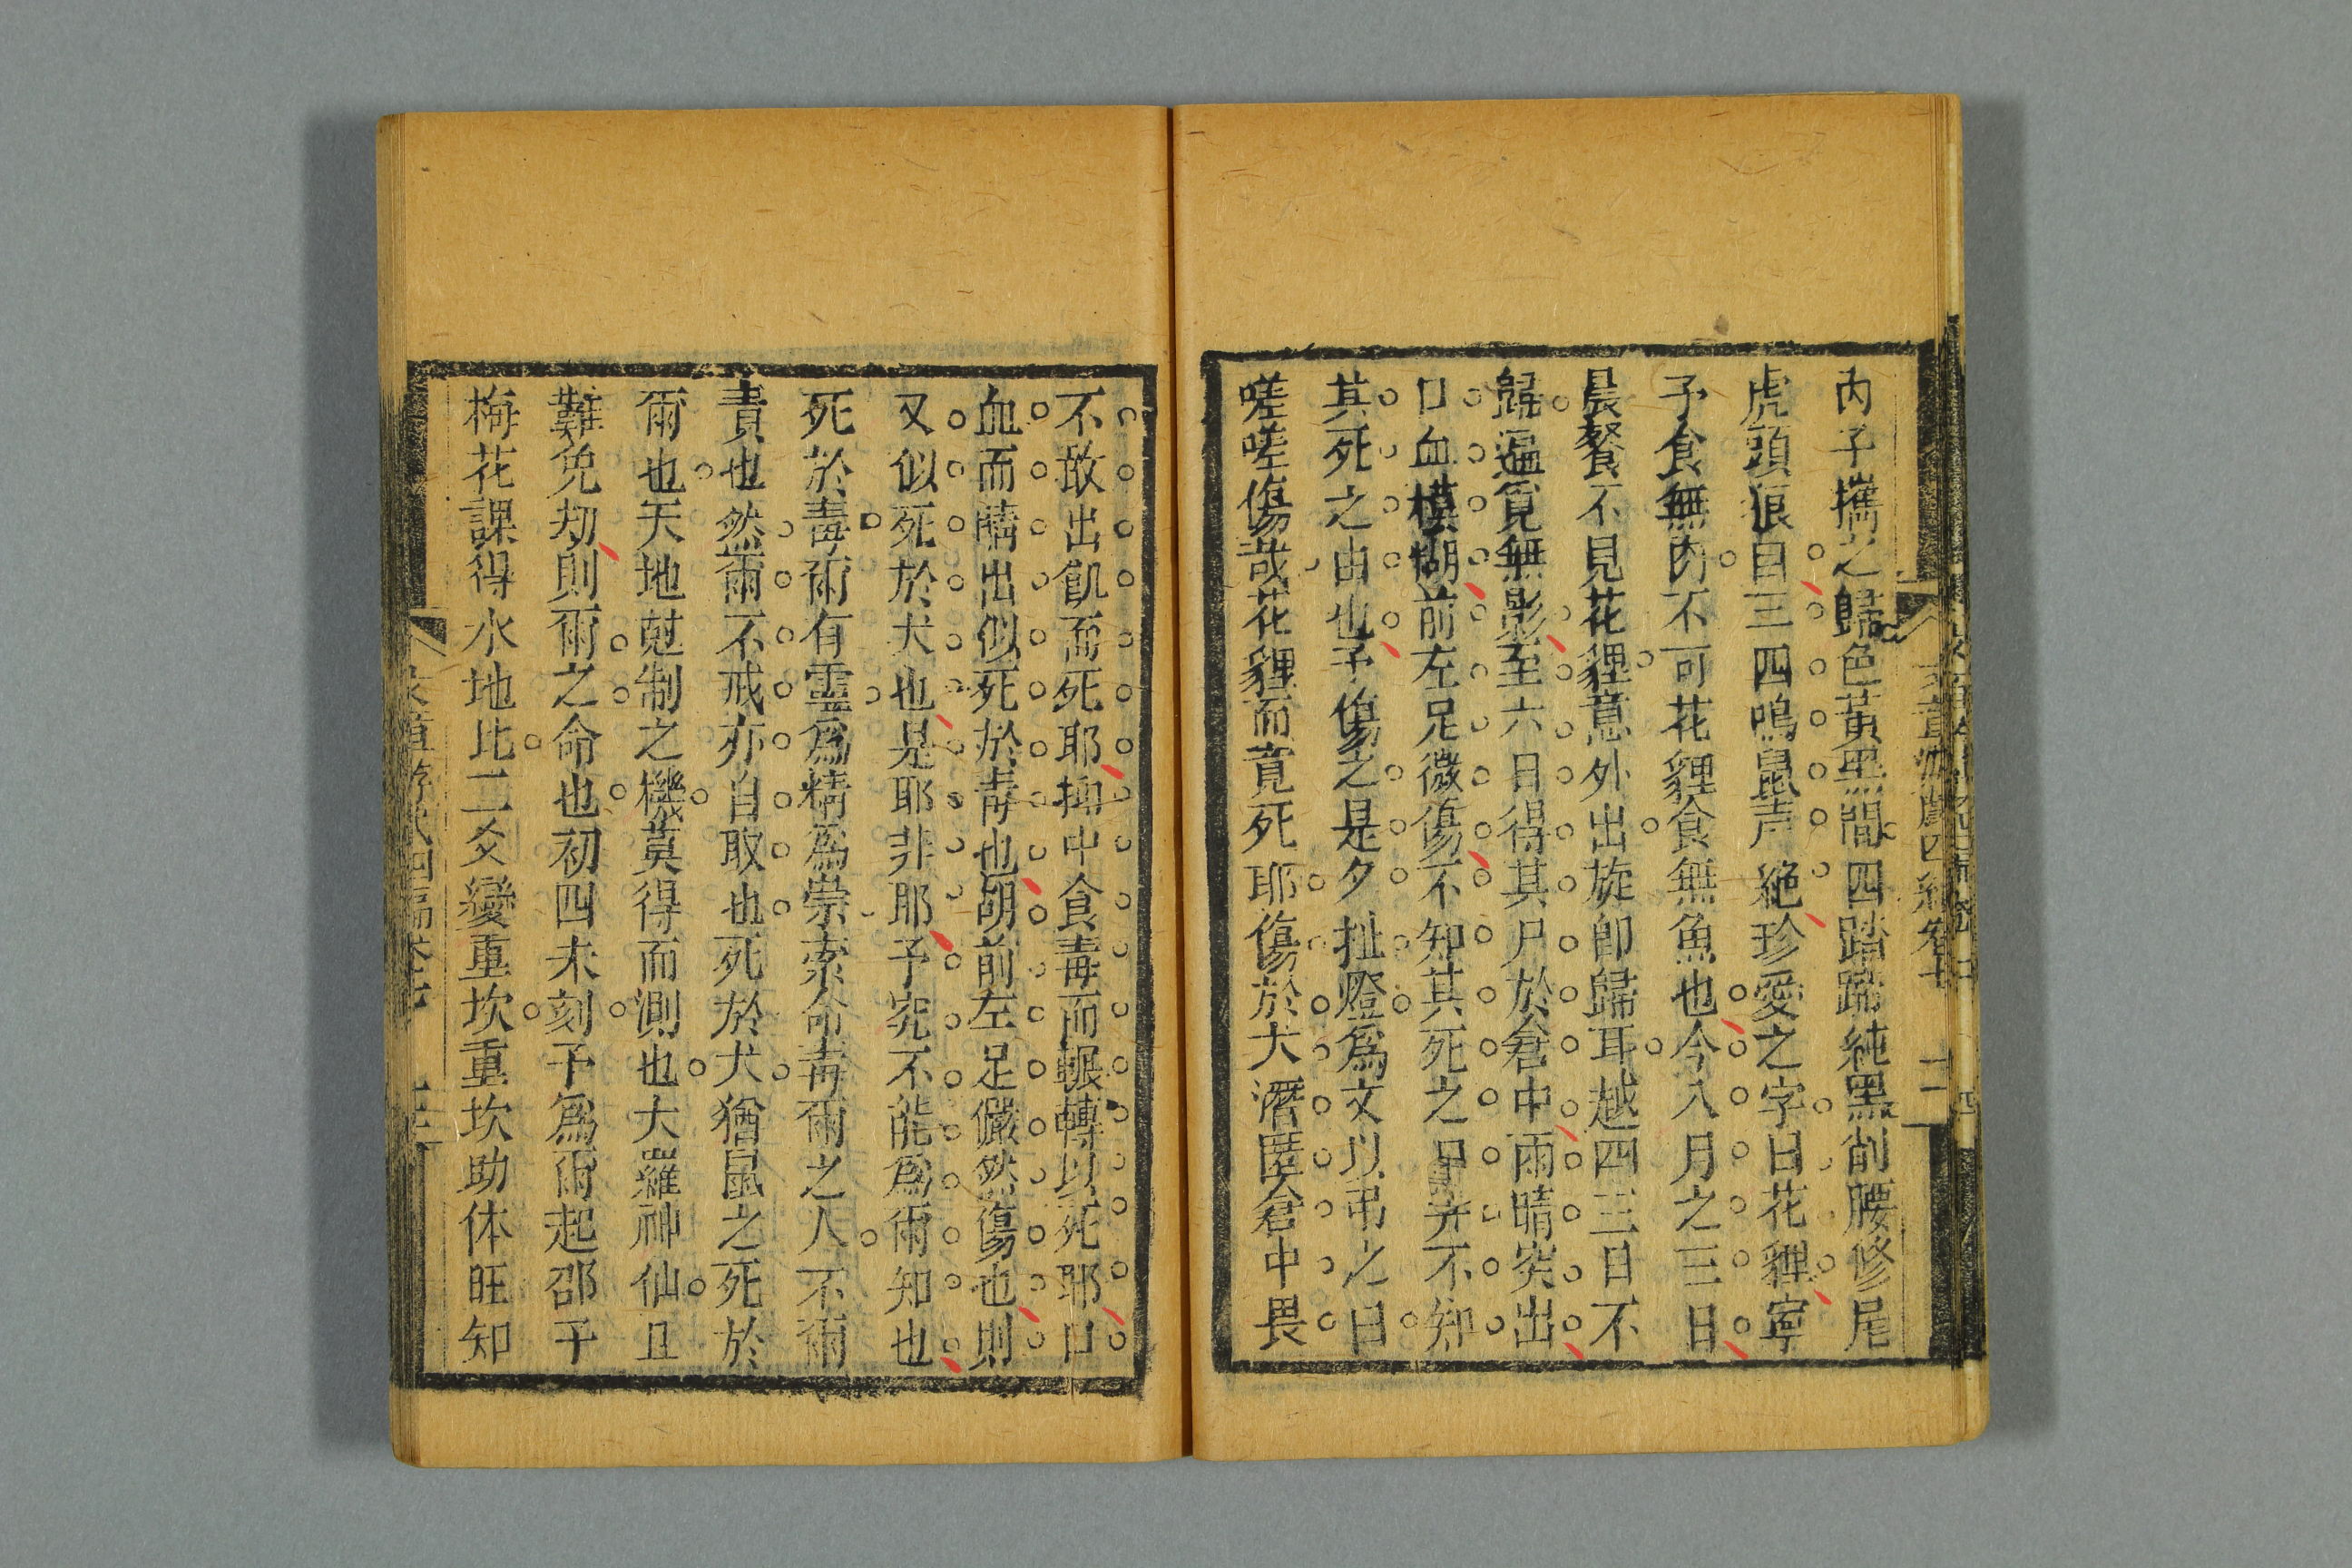 內子攜之歸色黃黑間四踏蹄純黑削腰修尾
虎頭狼目三四鳴鼠声絕珍愛之字曰花貍寧
予食無肉不可花貍食無魚也今八月之三日
晨餐不見花貍意外出旋即歸耳越四三日不
歸遍覓無影至六日得其尸於倉中雨晴突出
口血模糊前左足微傷不知其死之早并不知
其死之由也予傷之是夕扯燈爲文以弔之曰
嗟嗟傷哉花貍而竟死耶傷於犬潛匿倉中畏
不敢出飢而死耶抑中食毒而輾轉以死耶口
血而睛出似死於毒也胡前左足儼然傷也則
又似死於犬也是耶非耶予究不能爲爾知也
死於毒爾有靈爲精爲祟索命毒爾之人不爾
責也然爾不戒亦自取也死於犬猶鼠之死於
爾也天地尅制之機莫得而測也大羅神仙且
難免刼則爾之命也初四未刻予爲爾起邵子
梅花課得水地比二爻變重坎重坎助体旺知